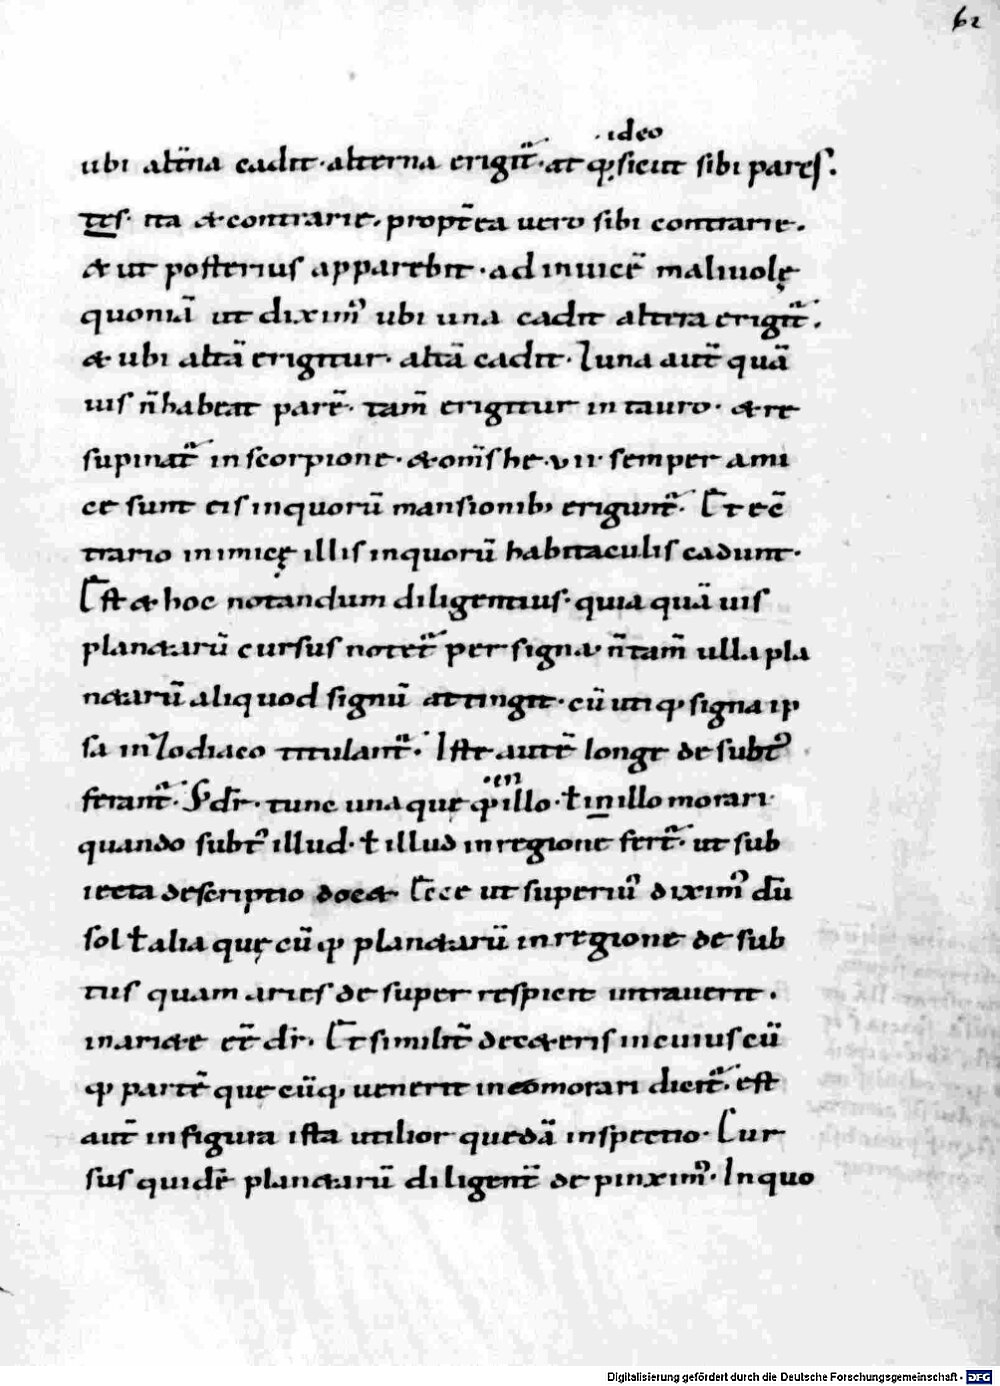 62
·ideo
ubi alt̄na cadit· alterna erigit᷑· at qꝫ sicut sibi pares.
tes· ita & contrarie. propt̄ea uero sibi contrarie.
& ut posterius apparebit· ad inuicē maliuolę
quoniā ut diximꝰ ubi una cadit altera erigit᷑.
& ubi altā erigitur· altā cadit· Luna aut̄ quā
uis n̄ habeat parē· tam̄ erigitur in tauro· & re
supinat᷑ in scorpione· & om̄s he· vii· semper ami
ce sunt eis in quorū mansionibꝰ erigunt᷑· Et e c̄
trario inimicę illis in quorū habitaculis cadunt·
Est & hoc notandum diligentius· quia quā uis
planetarū cursus notet᷑ per signa· n̄ tam̄ ulla pla
netarū aliquod signū attingit· cū utiqꝫ signa ip
sa in zodiaco titulant᷑. Iste autē longe de subtꝰ
ferant᷑. S; dr̄· tunc una quęqꝫ
·en
illo· ƚ in illo morari
quando subtꝰ illud· ƚ illud in regione fert᷑· ut sub
iecta descriptio docet Ecce ut superiuꝰ diximꝰ dū
sol ƚ alia quęcūqꝫ planetarū in regione de sub
tus quam aries de super respicit intrauerit.
in ariete eē dr̄. Et similit̄ de ceteris in cuius cū
qꝫ partē quecūqꝫ uenerit in eo morari dicit᷑· est
aut̄ in figura ista utilior quedā inspectio· Cur
sus quidē planetarū diligent̄ depinximꝰ. In quo
Digitalisierung gefördert durch die Deutsche Forschungsgemeinschaft - DFG